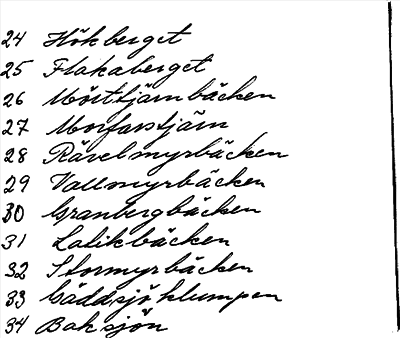 24 Hökberget
25 Flakaberget
26 Mörttjärnbäcken
27 Morfarstjärn
28 Rävelmyrbäcken
29 Vallmyrbäcken
30 Granbergbäcken
31 Latikbäcken
32 Stormyrbäcken
33 Gäddsjöklumpen
34 Baksjön